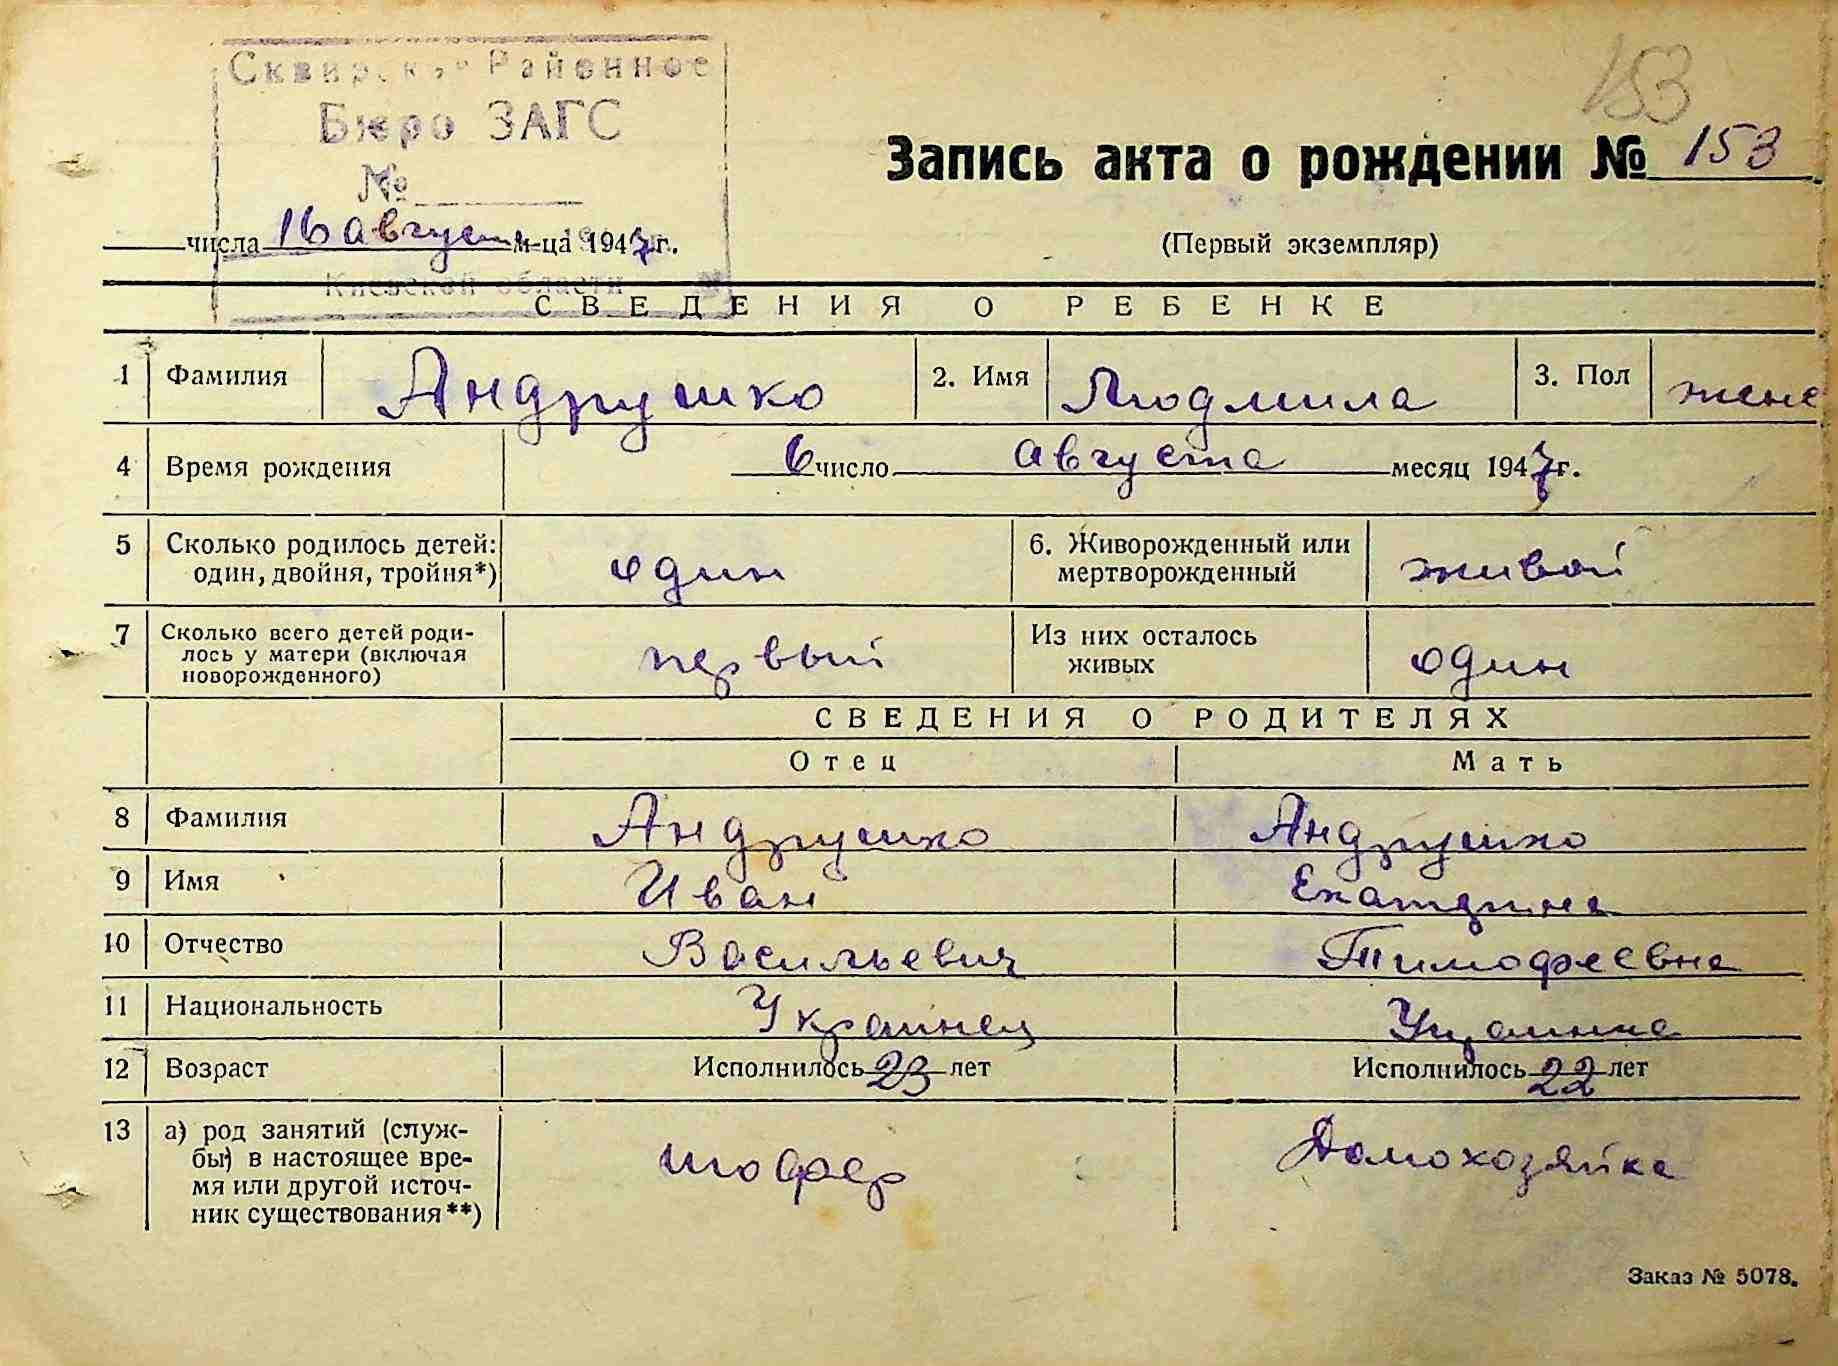 Сквирское Районное
Бюро ЗАГС
№
Киевской области
153
Запись акта о рождении № 153
числа 16 август м-ца 1947 г.
(Первый экземпляр)
СВЕДЕНИЯ О РЕБЕНКЕ
1 Фамилия Андрушко 2. Имя Людмила 3. Пол женс
4 Время рождения 6 число августа месяц 1947 г.
5 Сколько родилось детей: один, двойня, тройня*) один 6. Живорожденный или мертворожденный живой
7 Сколько всего детей родилось у матери (включая новорожденного) первый Из них осталось живых один
СВЕДЕНИЯ О РОДИТЕЛЯХ
Отец Мать
8 Фамилия Андрушко Андрушко
9 Имя Иван Екатерина
10 Отчество Васильевич Тимофеевна
11 Национальность Украинец Украинка
12 Возраст Исполнилось 23 лет Исполнилось 22 лет
13 а) род занятий (служ-
бы) в настоящее вре-
мя или другой источ-
ник существования**)
шофер Домохозяйка
Заказ № 5078.